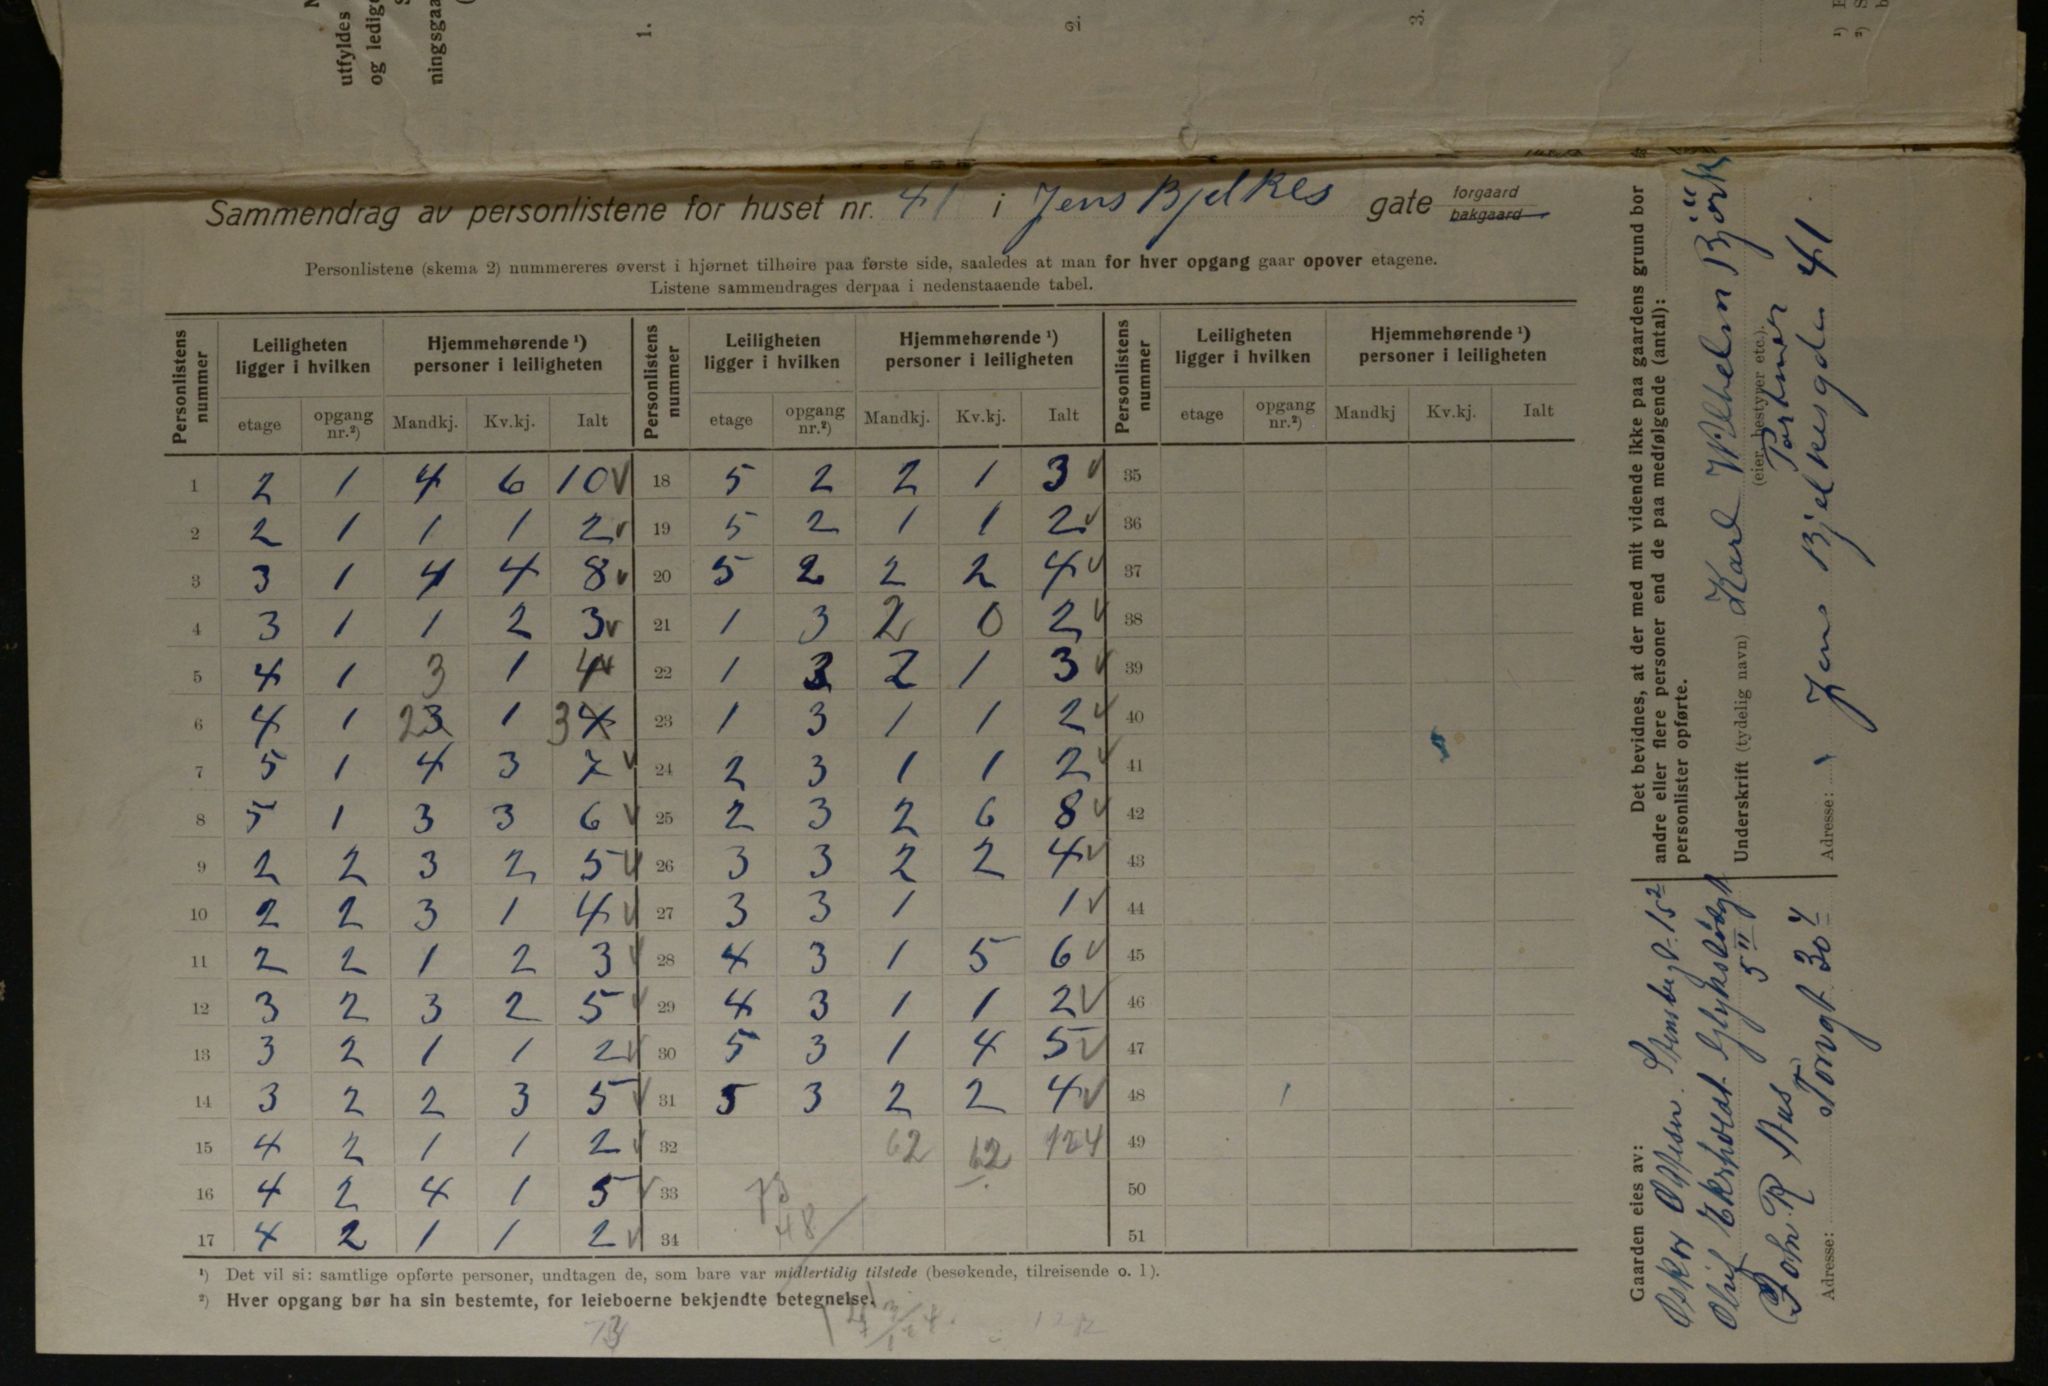 utfyldes
og ledig
ningsgaa
1.
2.
3.
Sammendrag av personlistene for huset nr. 41 i Jens Bjelkes gate forgaard
bakgaard
Personlistene (skema 2) nummereres øverst i hjørnet tilhøire paa første side, saaledes at man for hver opgang gaar opover etagene.
Listene sammendrages derpaa i nedenstaaende tabel.
Personlistens nummer | Leiligheten ligger i hvilken | Hjemmehørende ¹) personer i leiligheten | Personlistens nummer | Leiligheten ligger i hvilken | Hjemmehørende ¹) personer i leiligheten | Personlistens nummer | Leiligheten ligger i hvilken | Hjemmehørende ¹) personer i leiligheten
etage | opgang nr.²) | Mandkj. | Kv.kj. | Ialt | etage | opgang nr.²) | Mandkj. | Kv.kj. | Ialt | etage | opgang nr.²) | Mandkj | Kv.kj. | Ialt
1 2 1 4 6 10 ✓ 18 5 2 2 1 3 ✓ 35
2 2 1 1 1 2 ✓ 19 5 2 1 1 2 ✓ 36
3 3 1 4 4 8 ✓ 20 5 2 2 2 4 ✓ 37
4 3 1 1 2 3 ✓ 21 1 3 2 0 2 ✓ 38
5 4 1 3 1 4 ✓ 22 1 3 2 1 3 ✓ 39
6 4 1 2 3 1 3 4 23 1 3 1 1 2 ✓ 40
7 5 1 4 3 7 ✓ 24 2 3 1 1 2 ✓ 41
8 5 1 3 3 6 ✓ 25 2 3 2 6 8 ✓ 42
9 2 2 3 2 5 ✓ 26 3 3 2 2 4 ✓ 43
10 2 2 3 1 4 ✓ 27 3 3 1 1 ✓ 44
11 2 2 1 2 3 ✓ 28 4 3 1 5 6 ✓ 45
12 3 2 3 2 5 ✓ 29 4 3 1 1 2 ✓ 46
13 3 2 1 1 2 ✓ 30 5 3 1 4 5 ✓ 47
14 3 2 2 3 5 ✓ 31 5 3 2 2 4 ✓ 48
15 4 2 1 1 2 ✓ 32 62 62 124 49
16 4 2 4 1 5 ✓ 33 50
17 4 2 1 1 2 ✓ 34 48 51
¹) Det vil si: samtlige opførte personer, undtagen de, som bare var midlertidig tilstede (besøkende, tilreisende o. l).
²) Hver opgang bør ha sin bestemte, for leieboerne bekjendte betegnelse.
Det bevidnes, at der med mit vidende ikke paa gaardens grund bor
andre eller flere personer end de paa medfølgende (antal):
personlister opførte.
Underskrift (tydelig navn) Karl Vilhelm Björk
(eier, bestyrer etc.).
Portner
Adresse: Jens Bjelkesgde 41
Gaarden eies av:
Oskar Olsen. Stensbergt. 15²
Oluf Ekrholdt
5 II
John R Aas
Adresse: Torvgt 30 4